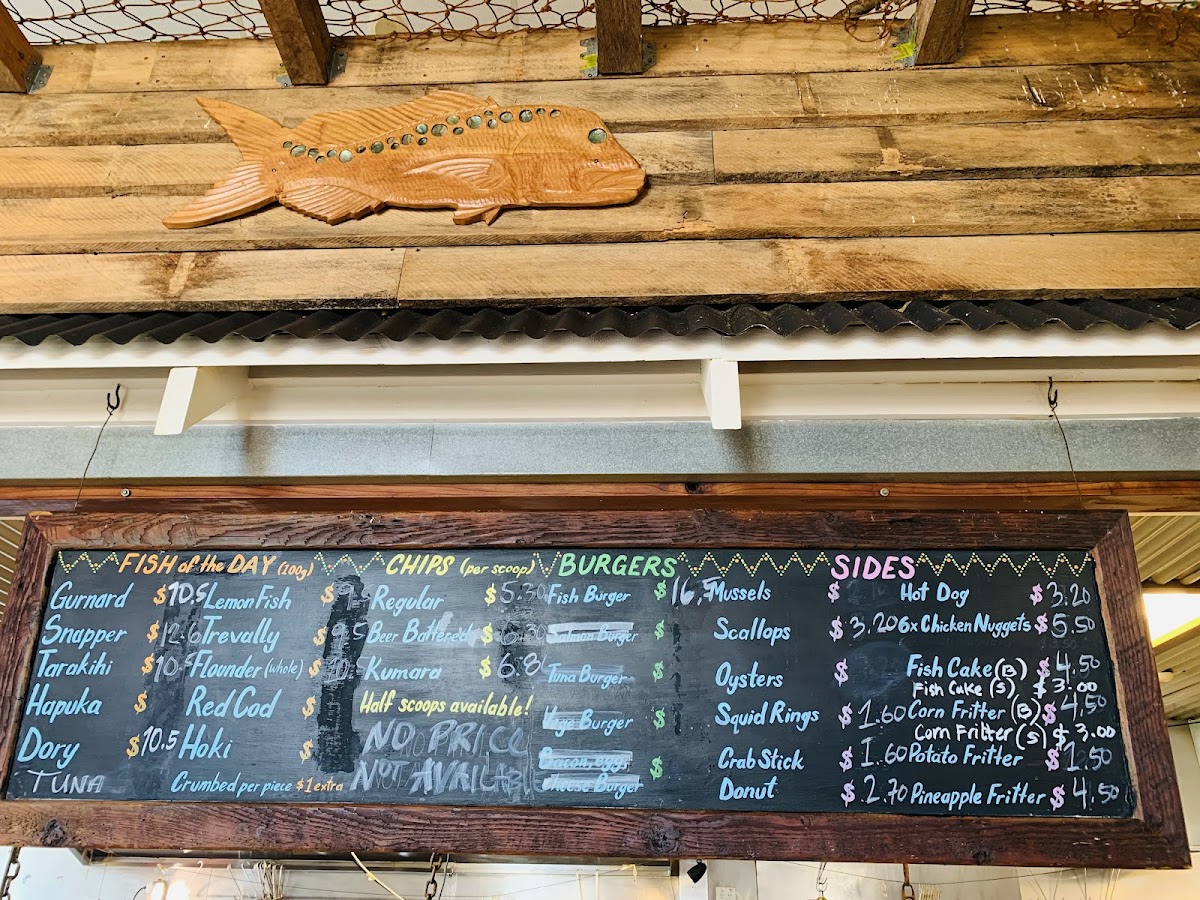 FISH of the DAY (100g)
Gurnard $10.5
Snapper $12.6
Tarakihi $10.5
Hapuka $
Dory $10.5
TUNA
Lemon Fish $
Trevally $9.5
Flounder (whole) $10.5
Red Cod $
Hoki $
Crumbed per piece $1 extra
CHIPS (per scoop)
Regular $5.30
Beer Battered $6.30
Kumara $6.80
Half scoops available!
NO PRICE
NOT AVAILABLE
BURGERS
Fish Burger $16.5
Salmon Burger $
Tuna Burger $
Vege Burger $
Bacon, egg, $
cheese Burger
SIDES
Mussels $
Scallops $3.20
Oysters $
Squid Rings $1.60
Crab Stick $1.60
Donut $2.70
Hot Dog $3.20
6x Chicken Nuggets $5.50
Fish Cake (B) $4.50
Fish Cake (S) $3.00
Corn Fritter (B) $4.50
Corn Fritter (S) $3.00
Potato Fritter $1.50
Pineapple Fritter $4.50